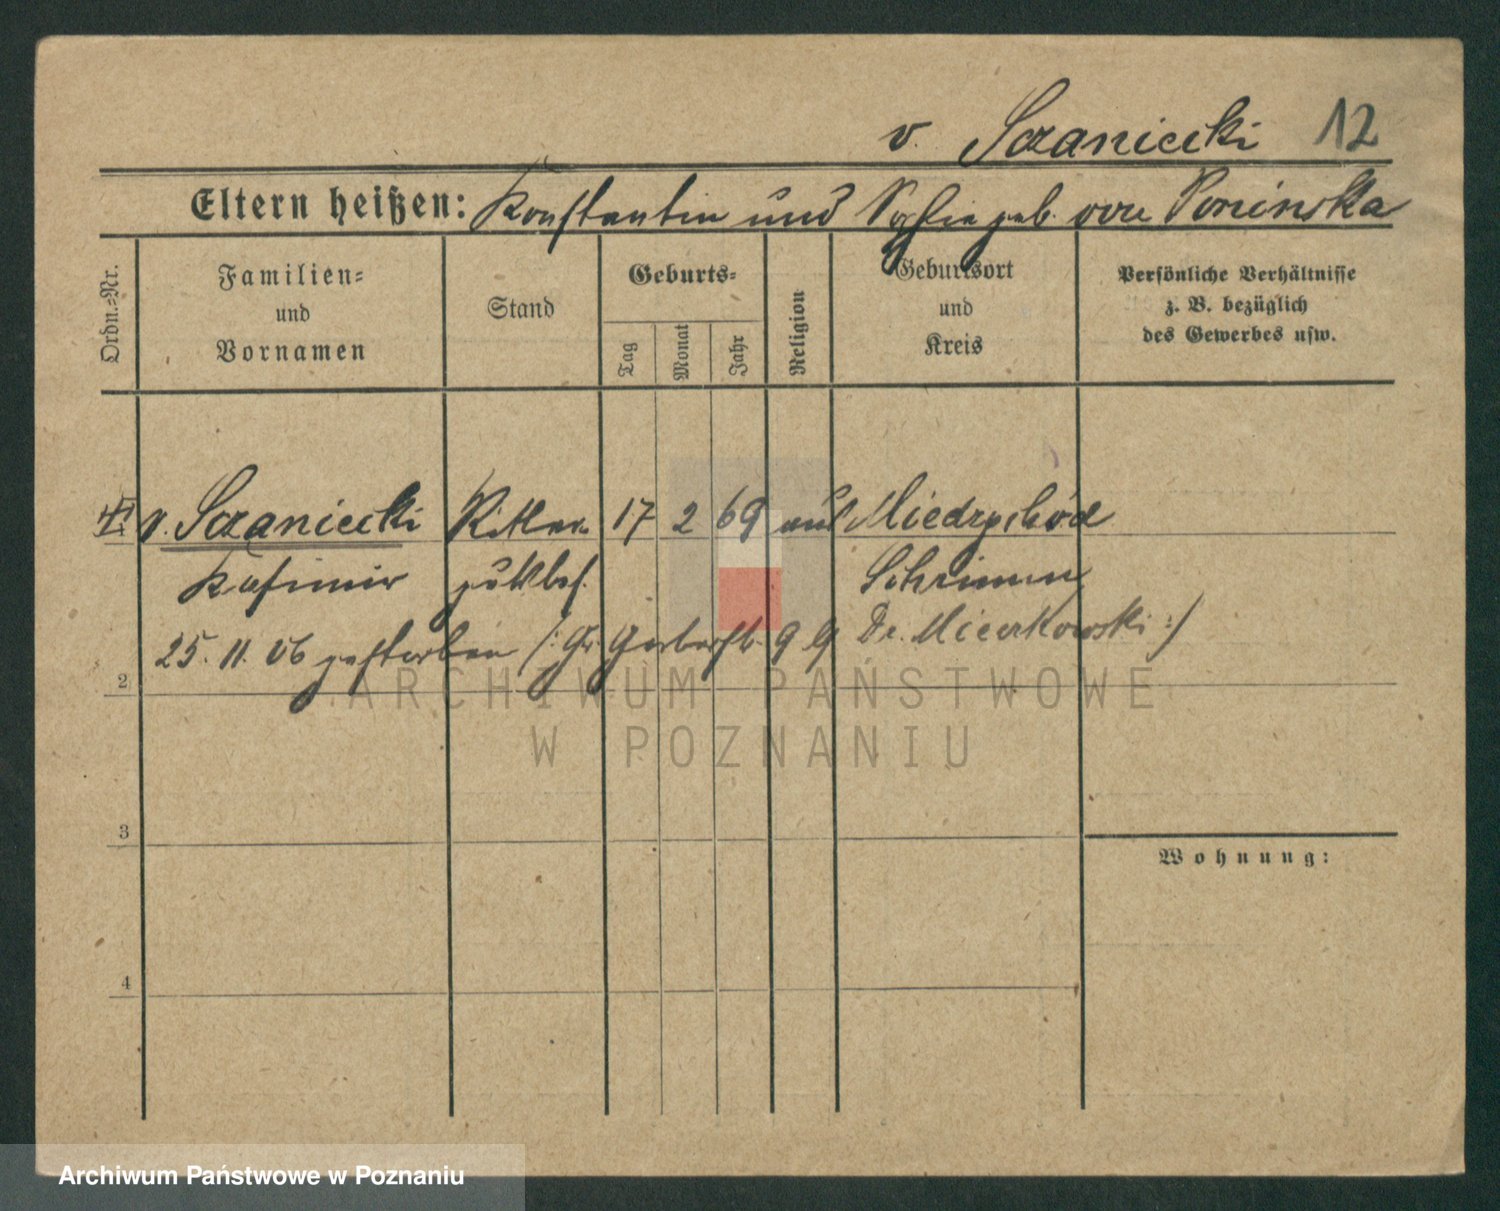 v. Sczaniecki 12
Eltern heißen: Konstantin und Sofie geb. von Poninska
Ordn.-Nr.
Familien-
und
Vornamen
Stand
Geburts-
Tag
Monat
Jahr
Religion
Geburtsort
und
Kreis
Persönliche Verhältnisse
z. B. bezüglich
des Gewerbes usw.
v. Sczaniecki Ritter- 17 2 69 Miedzychód
Kasimir gutsbes. Schrimm
25. 11. 06 gestorben /: Gr. Gerberstr. Dr. Mieczkowski :/
2
ARCHIWUM PAŃSTWOWE
W POZNANIU
3
Wohnung:
4
Archiwum Państwowe w Poznaniu